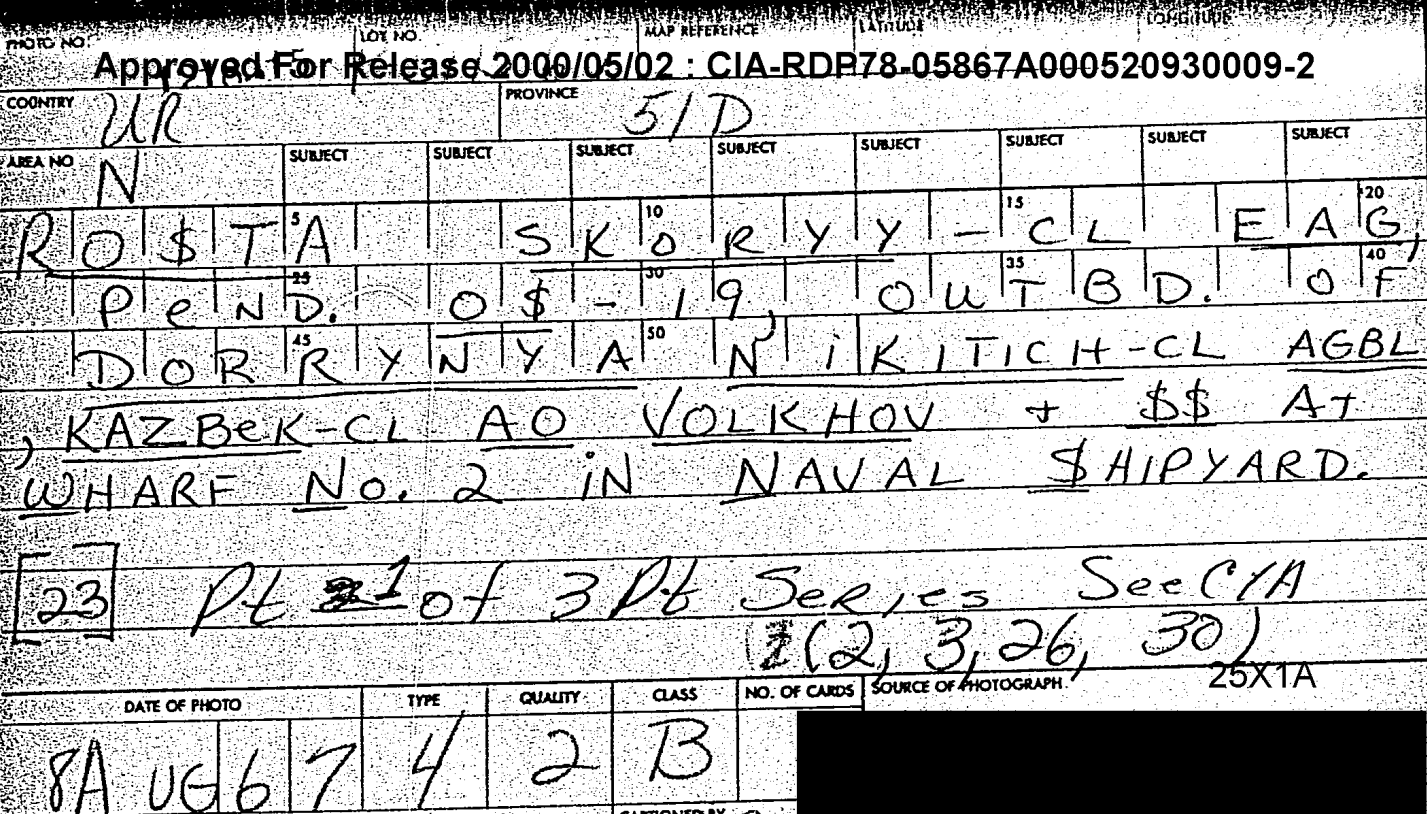 PHOTO NO. LOT NO. MAP REFERENCE LATITUDE LONGITUDE
Approved For Release 2000/05/02 : CIA-RDP78-05867A000520930009-2
COUNTRY UR PROVINCE 51D
AREA NO N SUBJECT SUBJECT SUBJECT SUBJECT SUBJECT SUBJECT SUBJECT SUBJECT
5 10 15 20
RO$TA SKORYY-CL EAG,
25 30 35 40
PeND. O$-19, OUTBD. OF
45 50
DORRYNYA NiKITICH-CL AGBL
, KAZBeK-CL AO VOLKHOV + $$ AT
WHARF No. 2 iN NAVAL $HIPYARD.
[23] Pt 1 of 3 Pt Series See C/A
(2, 3, 26, 30)
25X1A
DATE OF PHOTO TYPE QUALITY CLASS NO. OF CARDS SOURCE OF PHOTOGRAPH
8AUG67 4 2 B
CAPTIONED BY